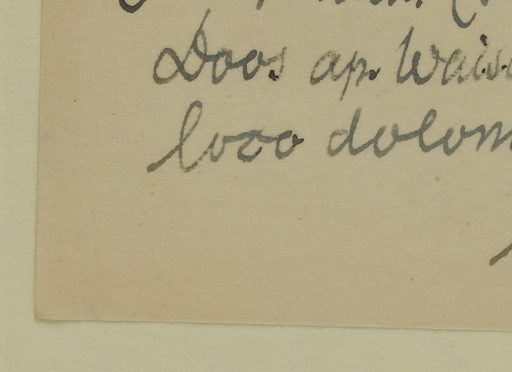 Doos ap. Wais
loco dolom